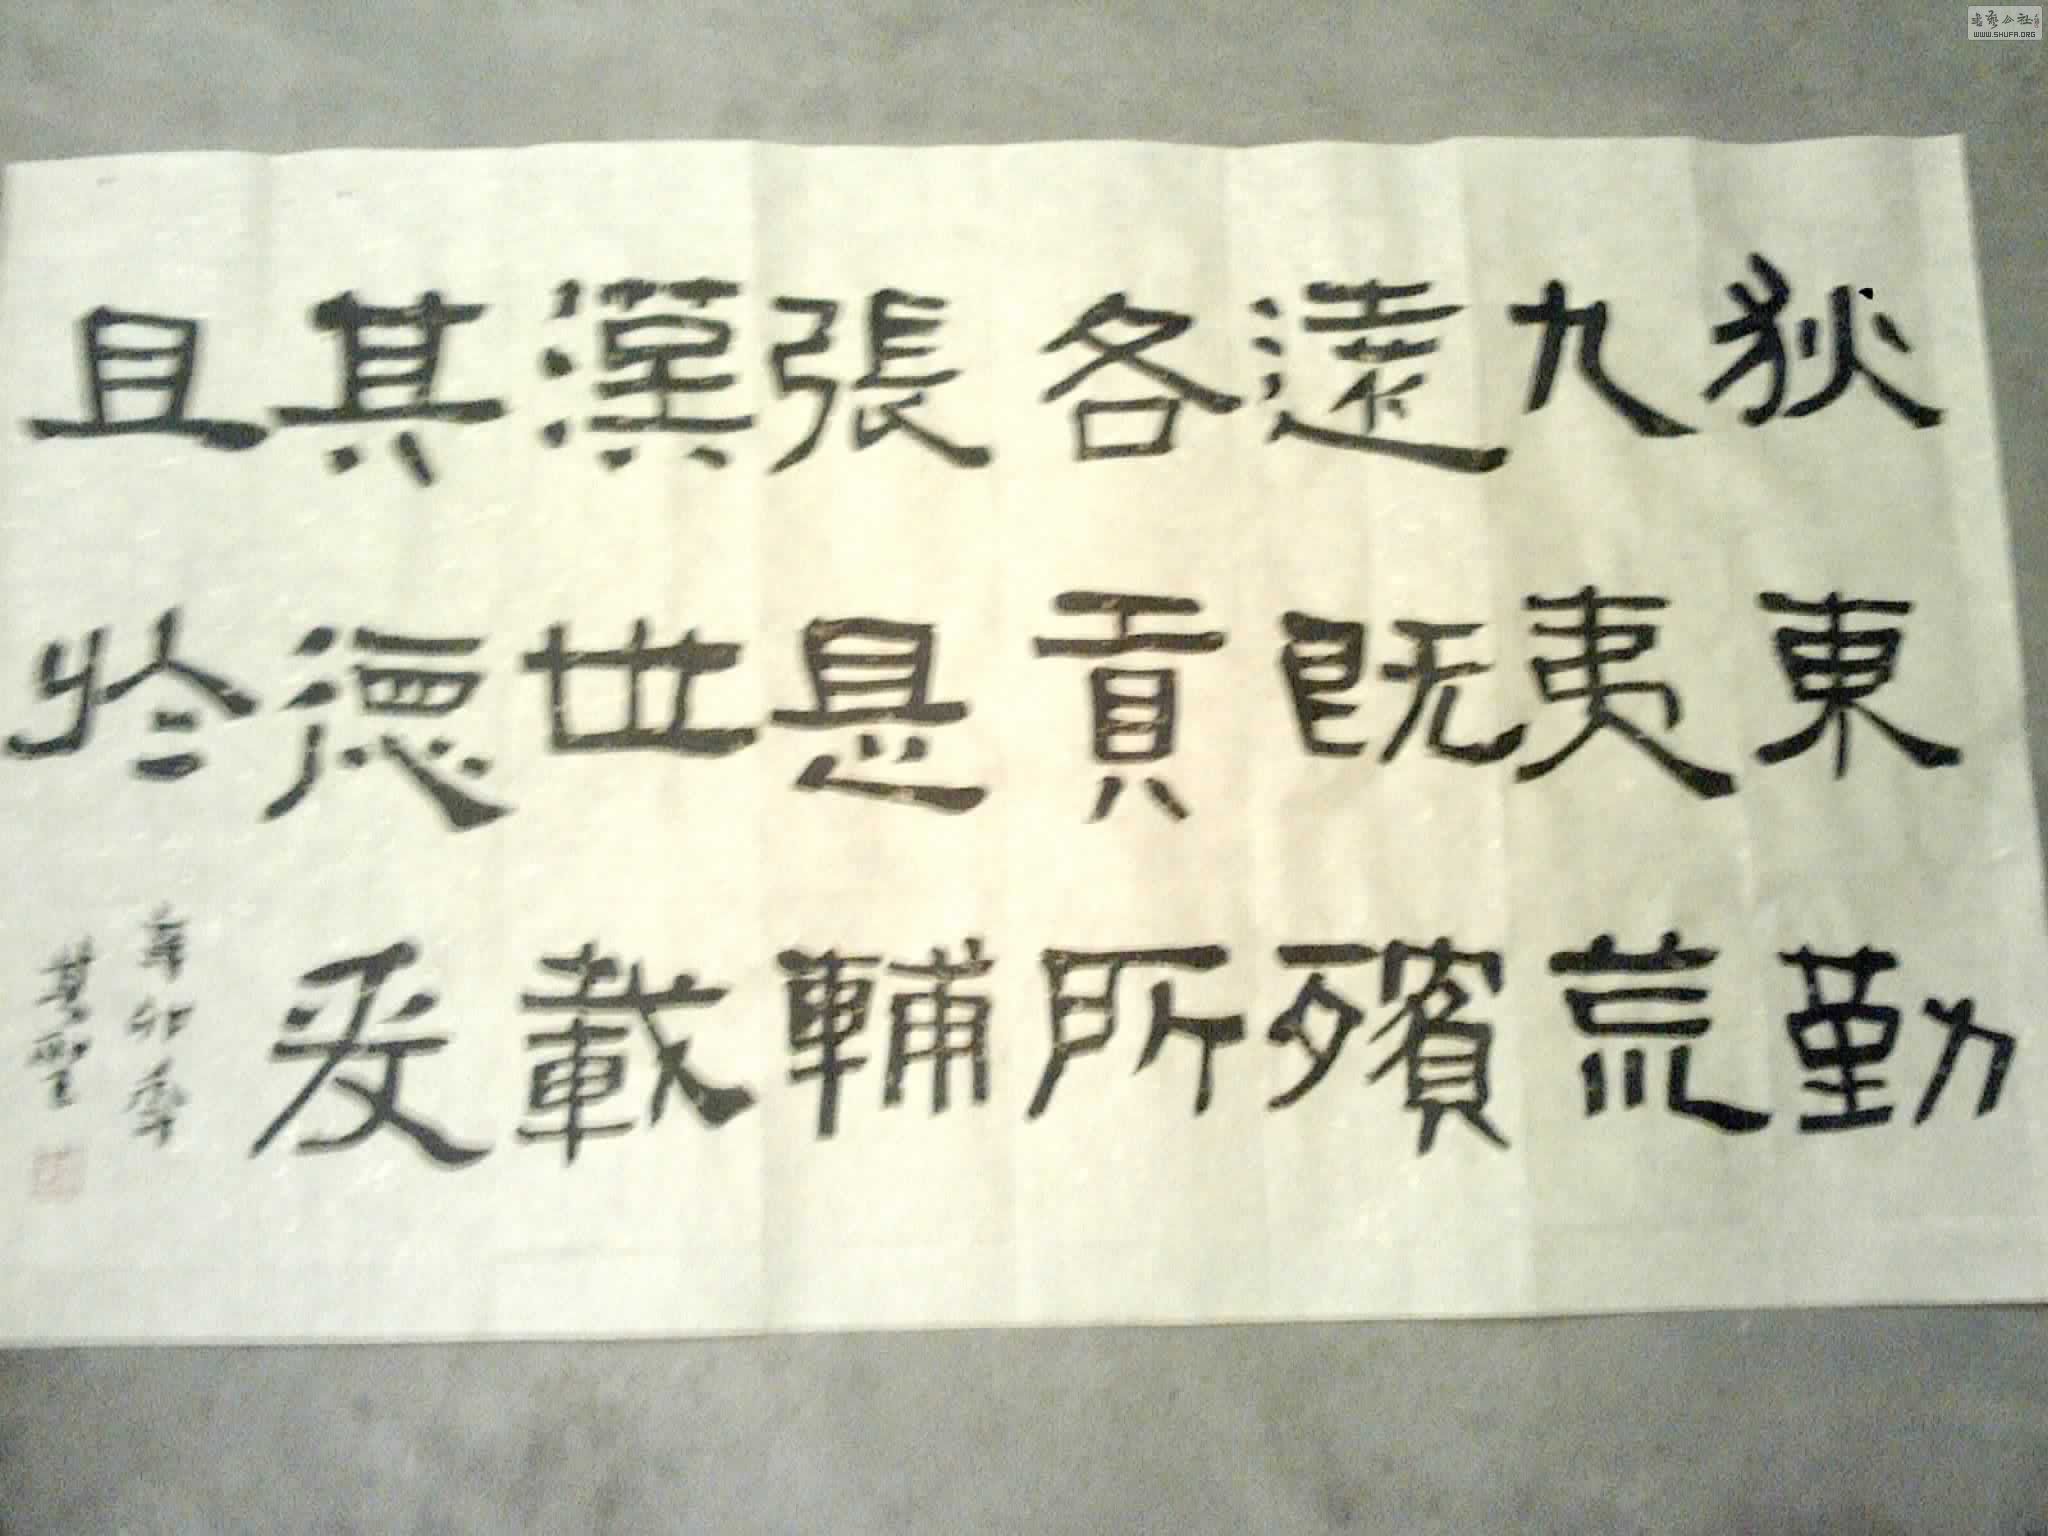 狄東勤
九夷荒
遠既殯
各貢所
張是輔
漢世載
其德爰
且於
辛卯
書藝公社
WWW.SHUFA.ORG